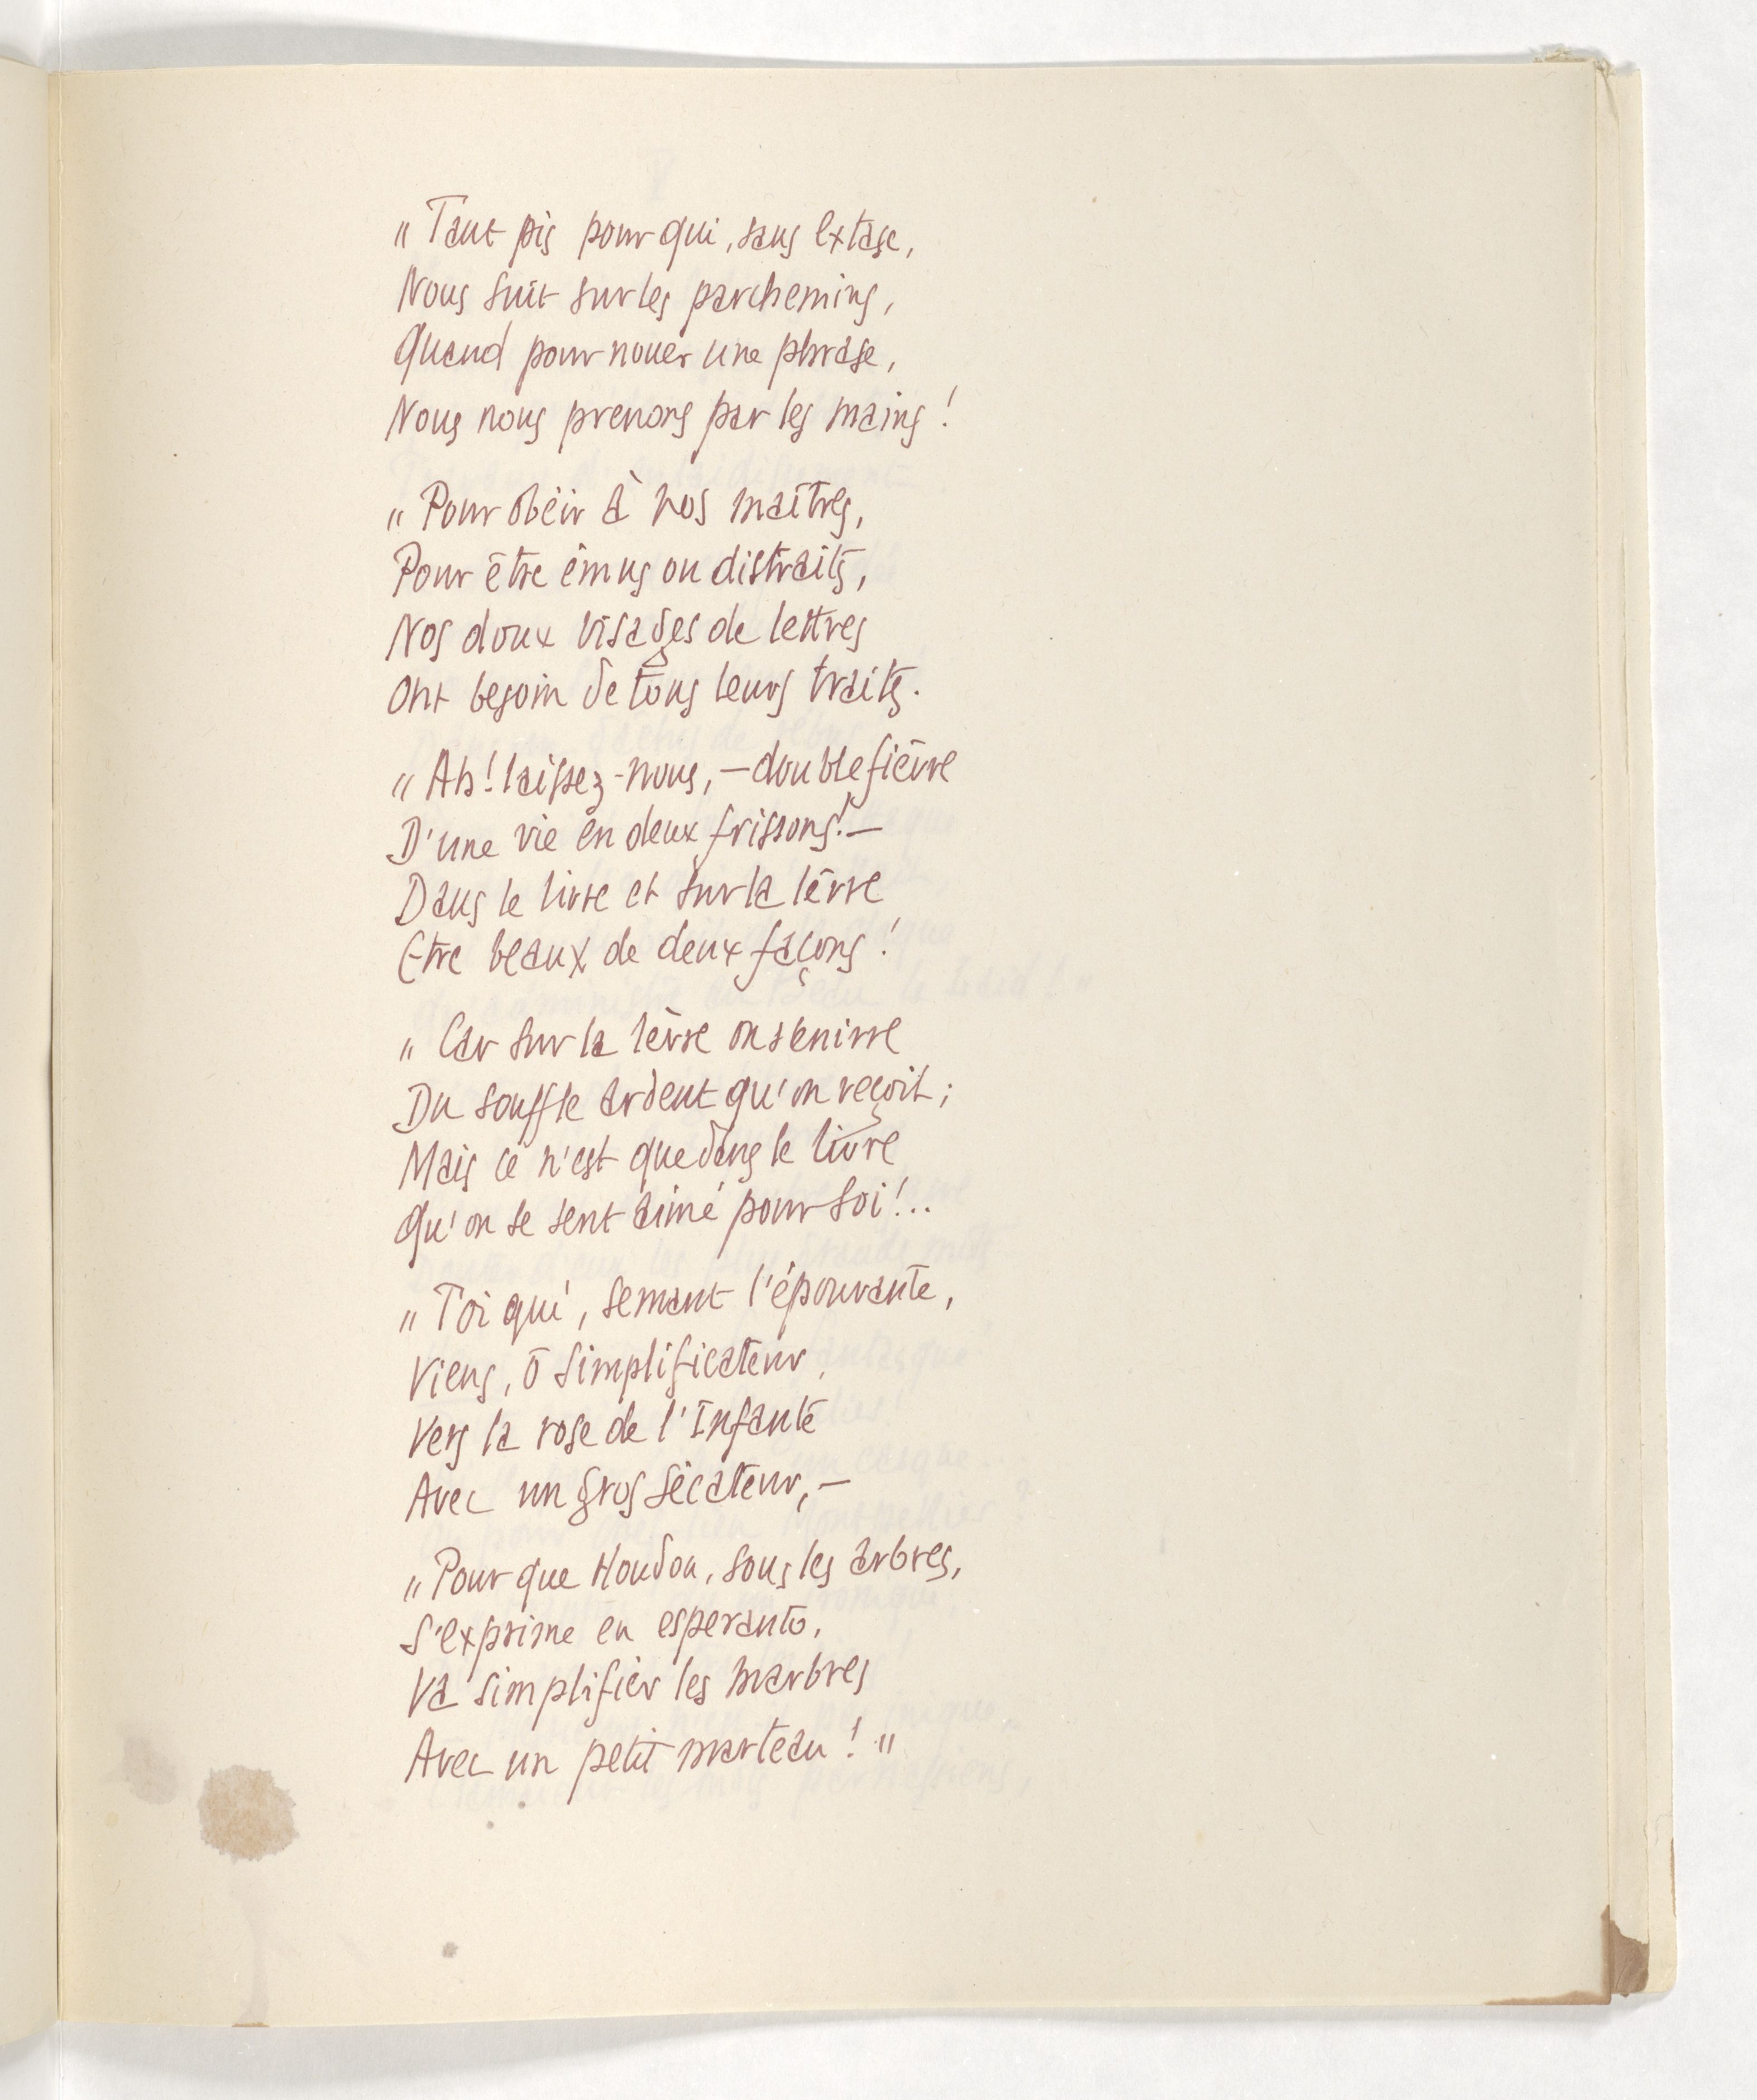 „ Tant pis pour qui, sans extase,
Nous suit sur les parchemins,
Quand pour nouer une phrase,
Nous nous prenons par les mains !
„ Pour obéir à nos maîtres,
Pour être émus ou distraits,
Nos doux visages de lettres
Ont besoin de tous leurs traits.
„ Ah ! laissez-nous, — double fièvre
D'une vie en deux frissons ! —
Dans le livre et sur la lèvre
Etre beaux de deux façons !
„ Car sur la lèvre on s'enivre
Du souffle ardent qu'on reçoit ;
Mais ce n'est que dans le livre
Qu'on se sent aimé pour soi !..
„ Toi qui, semant l'épouvante,
Viens, ô simplificateur,
Vers la rose de l'Infante
Avec un gros sécateur, —
„ Pour que Houdon, sous les arbres,
S'exprime en esperanto,
Va simplifier les marbres
Avec un petit marteau ! „